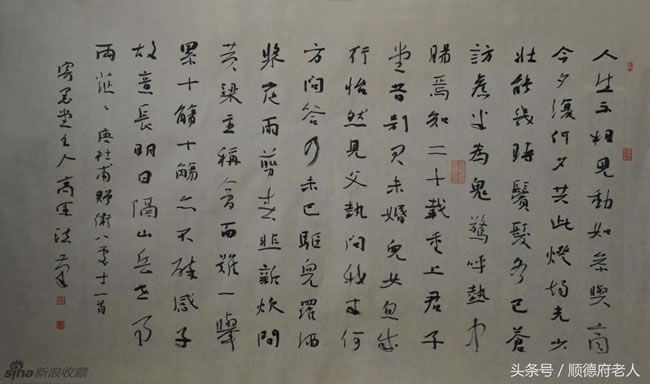 人生不相見動如參與商
今夕復何夕共此燈燭光少
壯能幾時鬢髮各已蒼
訪舊半為鬼驚呼熱中
腸焉知二十載重上君子
堂昔別君未婚兒女忽成
行怡然見父執問我來何
方問答乃未已驅兒羅酒
漿夜雨剪春韭新炊間
黄粱主稱會面難一舉
累十觴十觴亦不醉感子
故意長明日隔山岳世事
兩茫〻 唐杜甫贈衛八處士一首
堂主人高軍法
sina新浪收藏
头条号 / 顺德府老人